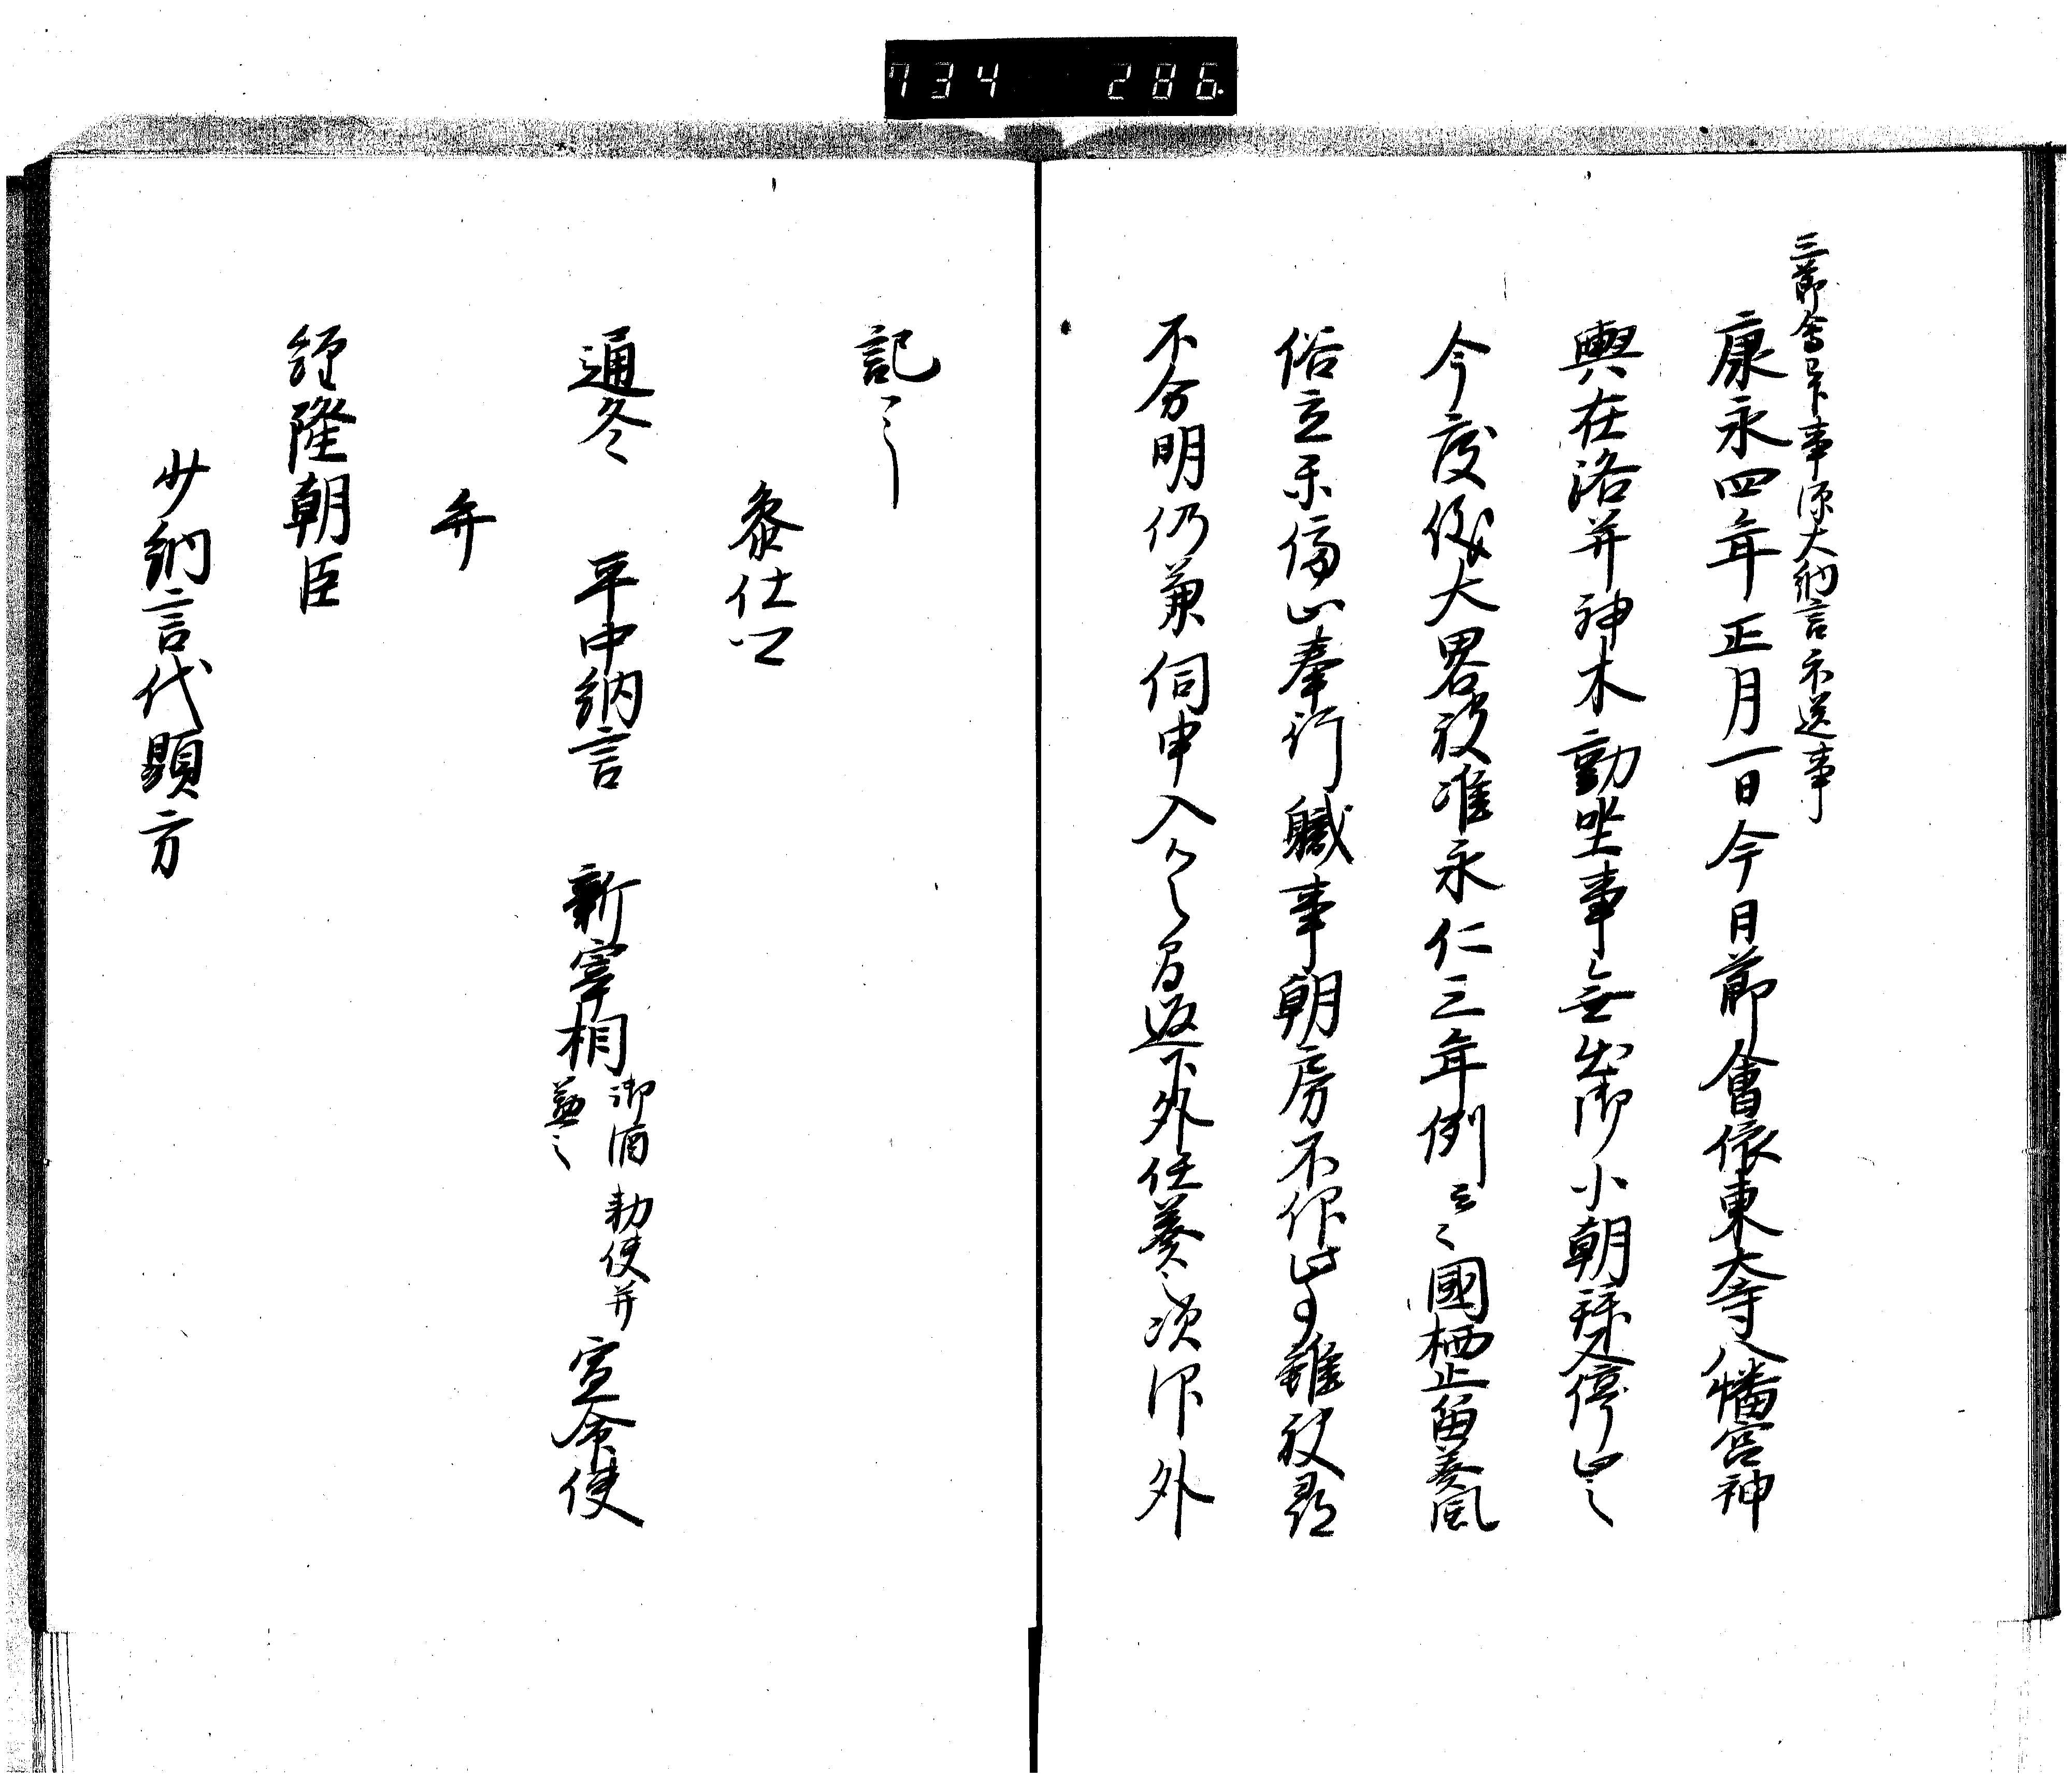 734 286
三節會已下事源大納言示送事
康永四年正月一日今日節會依東大寺八幡宮神
輿在洛并神木動坐事無出御小朝拜又停止之
今度儀大畧被准永仁三年例云々國栖止笛奏風
俗立樂停止奉行職事朝房不仰此事雖被尋
不分明仍兼伺申入了返下外任奏之次仰外
記之
参仕公
通冬 平中納言 新宰相 御酒勅使并兼之 宣命使
弁
經隆朝臣
少納言代顕方